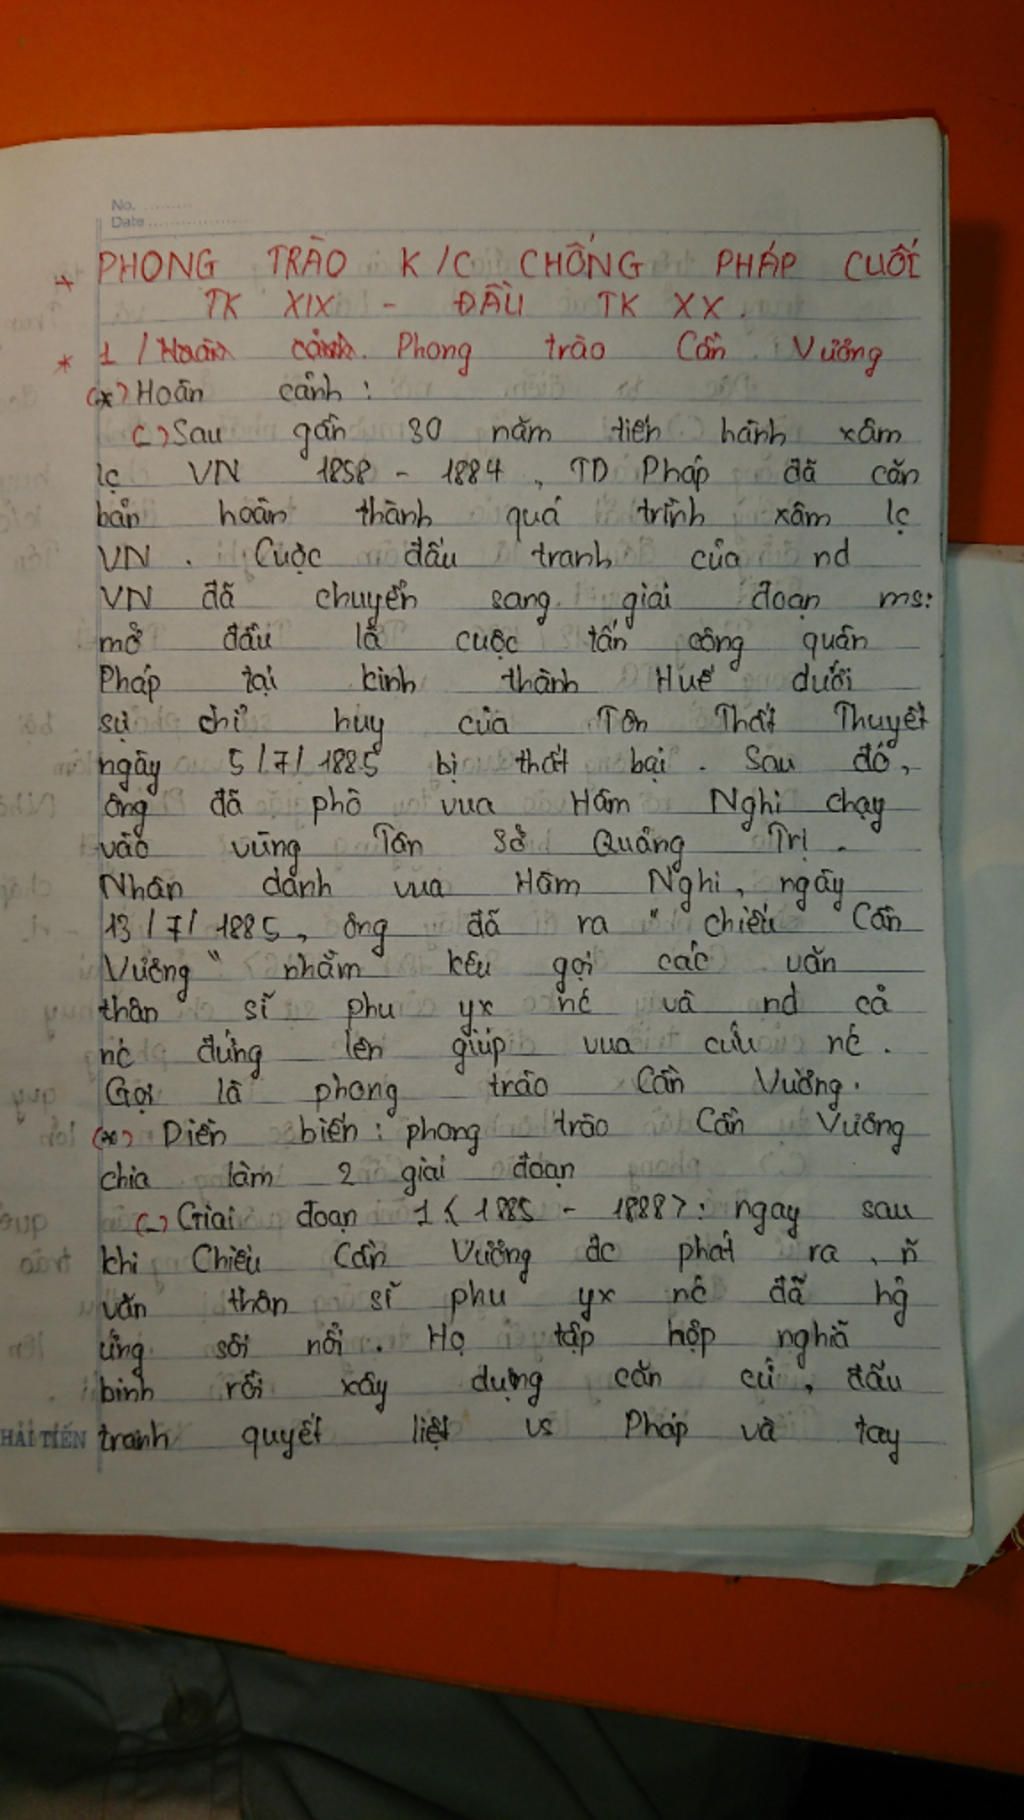 No. .........
Date ....................
* PHONG TRÀO K/C CHỐNG PHÁP CUỐI
TK XIX - ĐẦU TK XX.
* 1 / Hoàn cảnh. Phong trào Cần Vương
(*) Hoàn cảnh :
(-) Sau gần 30 năm tiến hành xâm
lc VN 1858 - 1884, TD Pháp đã căn
bản hoàn thành quá trình xâm lc
VN. Cuộc đấu tranh của nd
VN đã chuyển sang giai đoạn ms:
mở đầu là cuộc tấn công quân
Pháp tại kinh thành Huế dưới
sự chỉ huy của Tôn Thất Thuyết
ngày 5/7/1885 bị thất bại. Sau đó,
ông đã phò vua Hàm Nghi chạy
vào vùng Tân Sở Quảng Trị.
Nhân danh vua Hàm Nghi, ngày
13/7/1885, ông đã ra "chiếu Cần
Vương" nhằm kêu gọi các văn
thân sĩ phu yx nc và nd cả
nc đứng lên giúp vua cứu nc.
Gọi là phong trào Cần Vương.
(*) Diễn biến: phong trào Cần Vương
chia làm 2 giai đoạn
(-) Giai đoạn 1 < 1885 - 1888 >: ngay sau
khi Chiếu Cần Vương đc phát ra, ñ
văn thân sĩ phu yx nc đã hg̉
ứng sôi nổi. Họ tập hợp nghĩa
binh rồi xây dựng căn cứ, đấu
tranh quyết liệt vs Pháp và tay
HẢI TIẾN